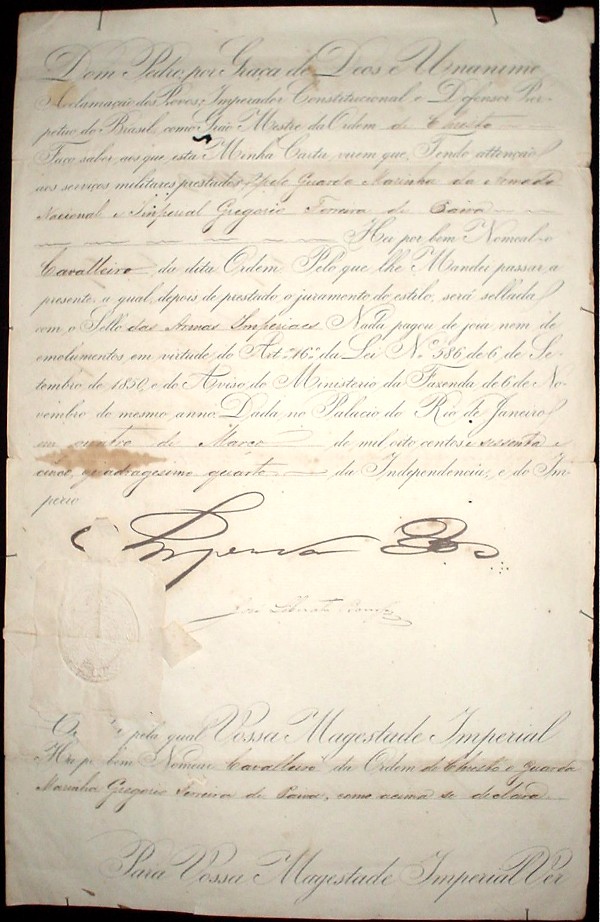 Dom Pedro, por Graça de Deos e Unanime
Acclamação dos Povos, Imperador Constitucional e Defensor Per-
petuo do Brasil, como Grão Mestre da Ordem de Christo
Faço saber aos que esta Minha Carta virem que, Tendo attenção
aos serviços militares prestados pelo Guarda Marinha da Armada
Nacional e Imperial Gregorio Ferreira de Paiva
Hei por bem Nomeal-o
Cavalleiro da dita Ordem. Pelo que lhe Mandei passar a
presente, a qual, depois de prestado o juramento do estilo, será sellada
com o Sello das Armas Imperiaes Nada pagou de joia nem de
emolumentos, em virtude do Artº 16º da Lei Nº 586 de 6 de Se-
tembro de 1850, e do Aviso do Ministerio da Fazenda de 6 de No-
vembro do mesmo anno. Dada no Palacio do Rio de Janeiro
em quatro de Março de mil oito centos e sessenta e
cinco, quadragesimo quarto da Independencia, e do Im-
perio
Imperador
José Liberato
pela qual Vossa Magestade Imperial
Ha por bem Nomear Cavalleiro da Ordem de Christo o Guarda
Marinha Gregorio Ferreira de Paiva, como acima se declara
Para Vossa Magestade Imperial Ver